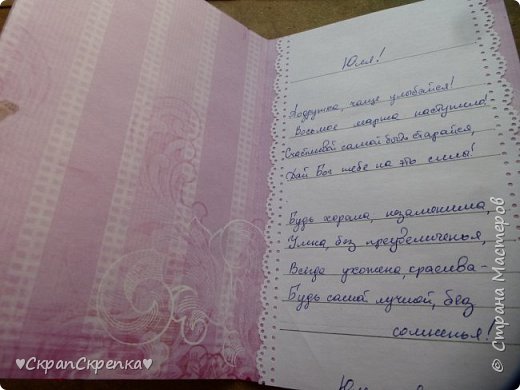 Юля!
Подружка, чаще улыбайся!
Восьмое марта наступило!
Счастливой самой быть старайся,
Дай Бог тебе на это силы!
Будь хороша, незаменима,
Умна, без преувеличенья,
Всегда ухожена, красива-
Будь самой лучшей, без
сомненья!
♥СкрапСкрепка♥
© Страна Мастеров